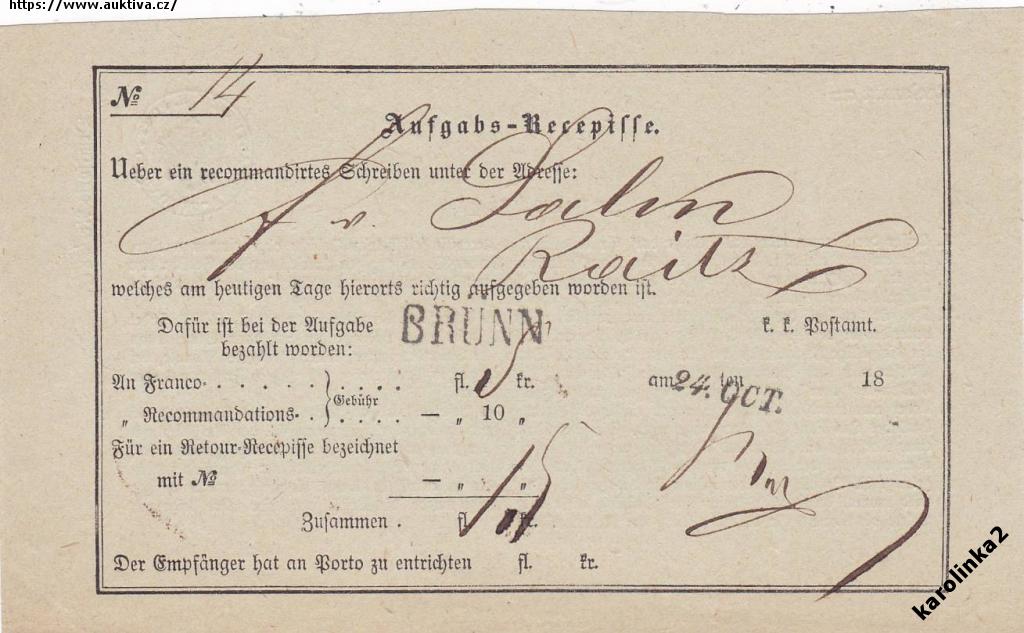 https://www.auktiva.cz/
№ 14
Aufgabs-Recepisse.
Ueber ein recommandirtes Schreiben unter der Adresse:
F v. Salm
Raitz
welches am heutigen Tage hierorts richtig aufgegeben worden ist.
Dafür ist bei der Aufgabe bezahlt worden:
BRÜNN
k. k. Postamt.
An Franco- . . . . . } Gebühr . . . . fl. 5 kr.
„ Recommandations- . . . . . — „ 10 „
am 24. ten OCT. 18
Für ein Retour-Recepisse bezeichnet
mit № — „ „
Zusammen . fl. 15 kr.
Der Empfänger hat an Porto zu entrichten fl. kr.
karolinka2